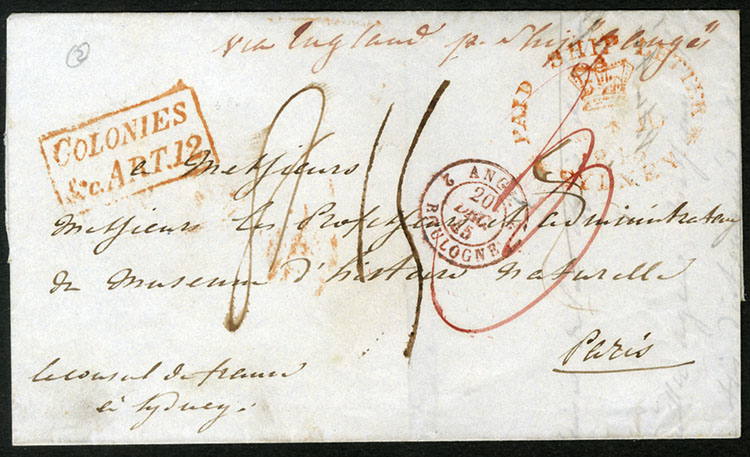 (5)
via England p. Ship
PAID SHIP LETTER
SYDNEY
COLONIES
&c. ART. 12.
15
2 ANGL. BOULOGNE
20
DEC.
45
a Messieurs
Messieurs les Professeurs et administrateurs
du Museum d'histoire naturelle
Paris
le consul de france
à Sydney.